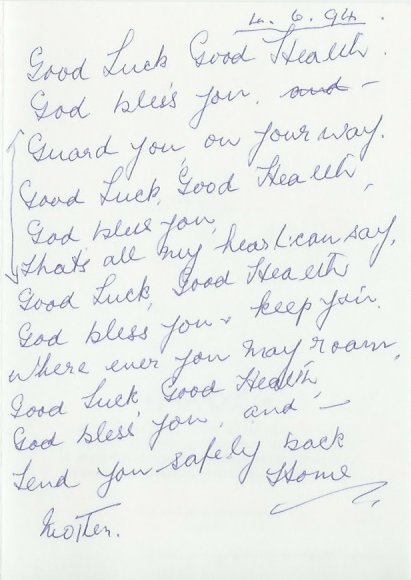 4. 6. 94.
Good Luck Good Health.
God bless you, and -
Guard you, on your way.
Good Luck, Good Health,
God bless you,
thats all my heart can say,
Good Luck, Good Health
God bless you & keep you.
where ever you may roam,
Good Luck, Good Health,
God bless you, and -
Send you safely back
Home
Mother.